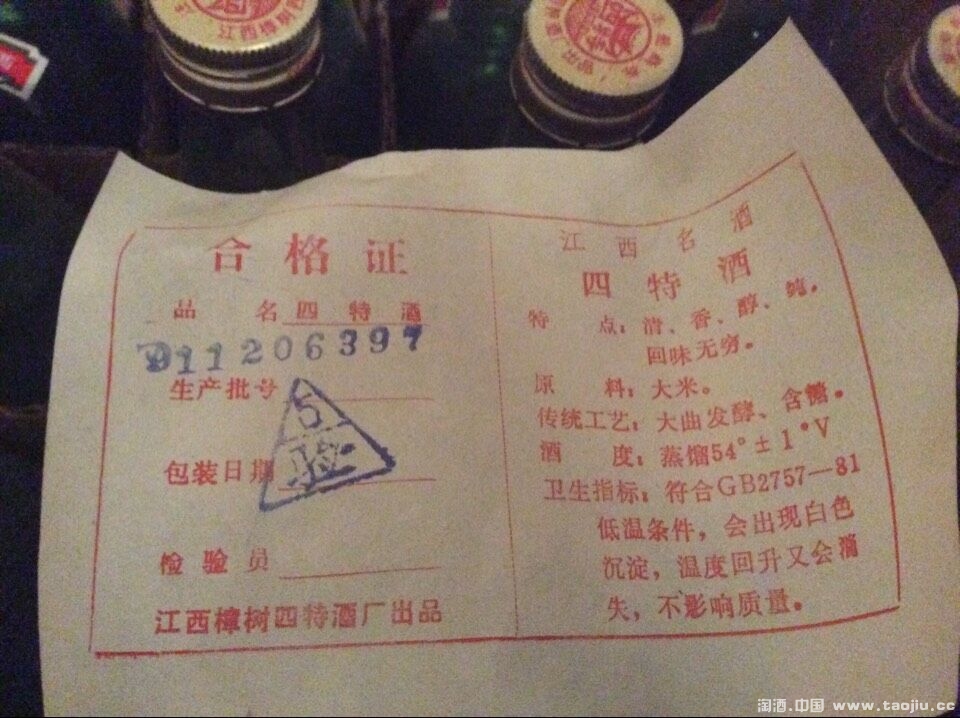 合格证
品名 四特酒
911206397
生产批号
5
检
包装日期
检验员
江西樟树四特酒厂出品
江西名酒
四特酒
特点：清、香、醇、纯。
回味无穷。
原料：大米。
传统工艺：大曲发酵、含糖。
酒度：蒸馏54°±1°V
卫生指标：符合GB2757—81
低温条件，会出现白色
沉淀，温度回升又会消
失，不影响质量。
淘酒.中国 www.taojiu.cc